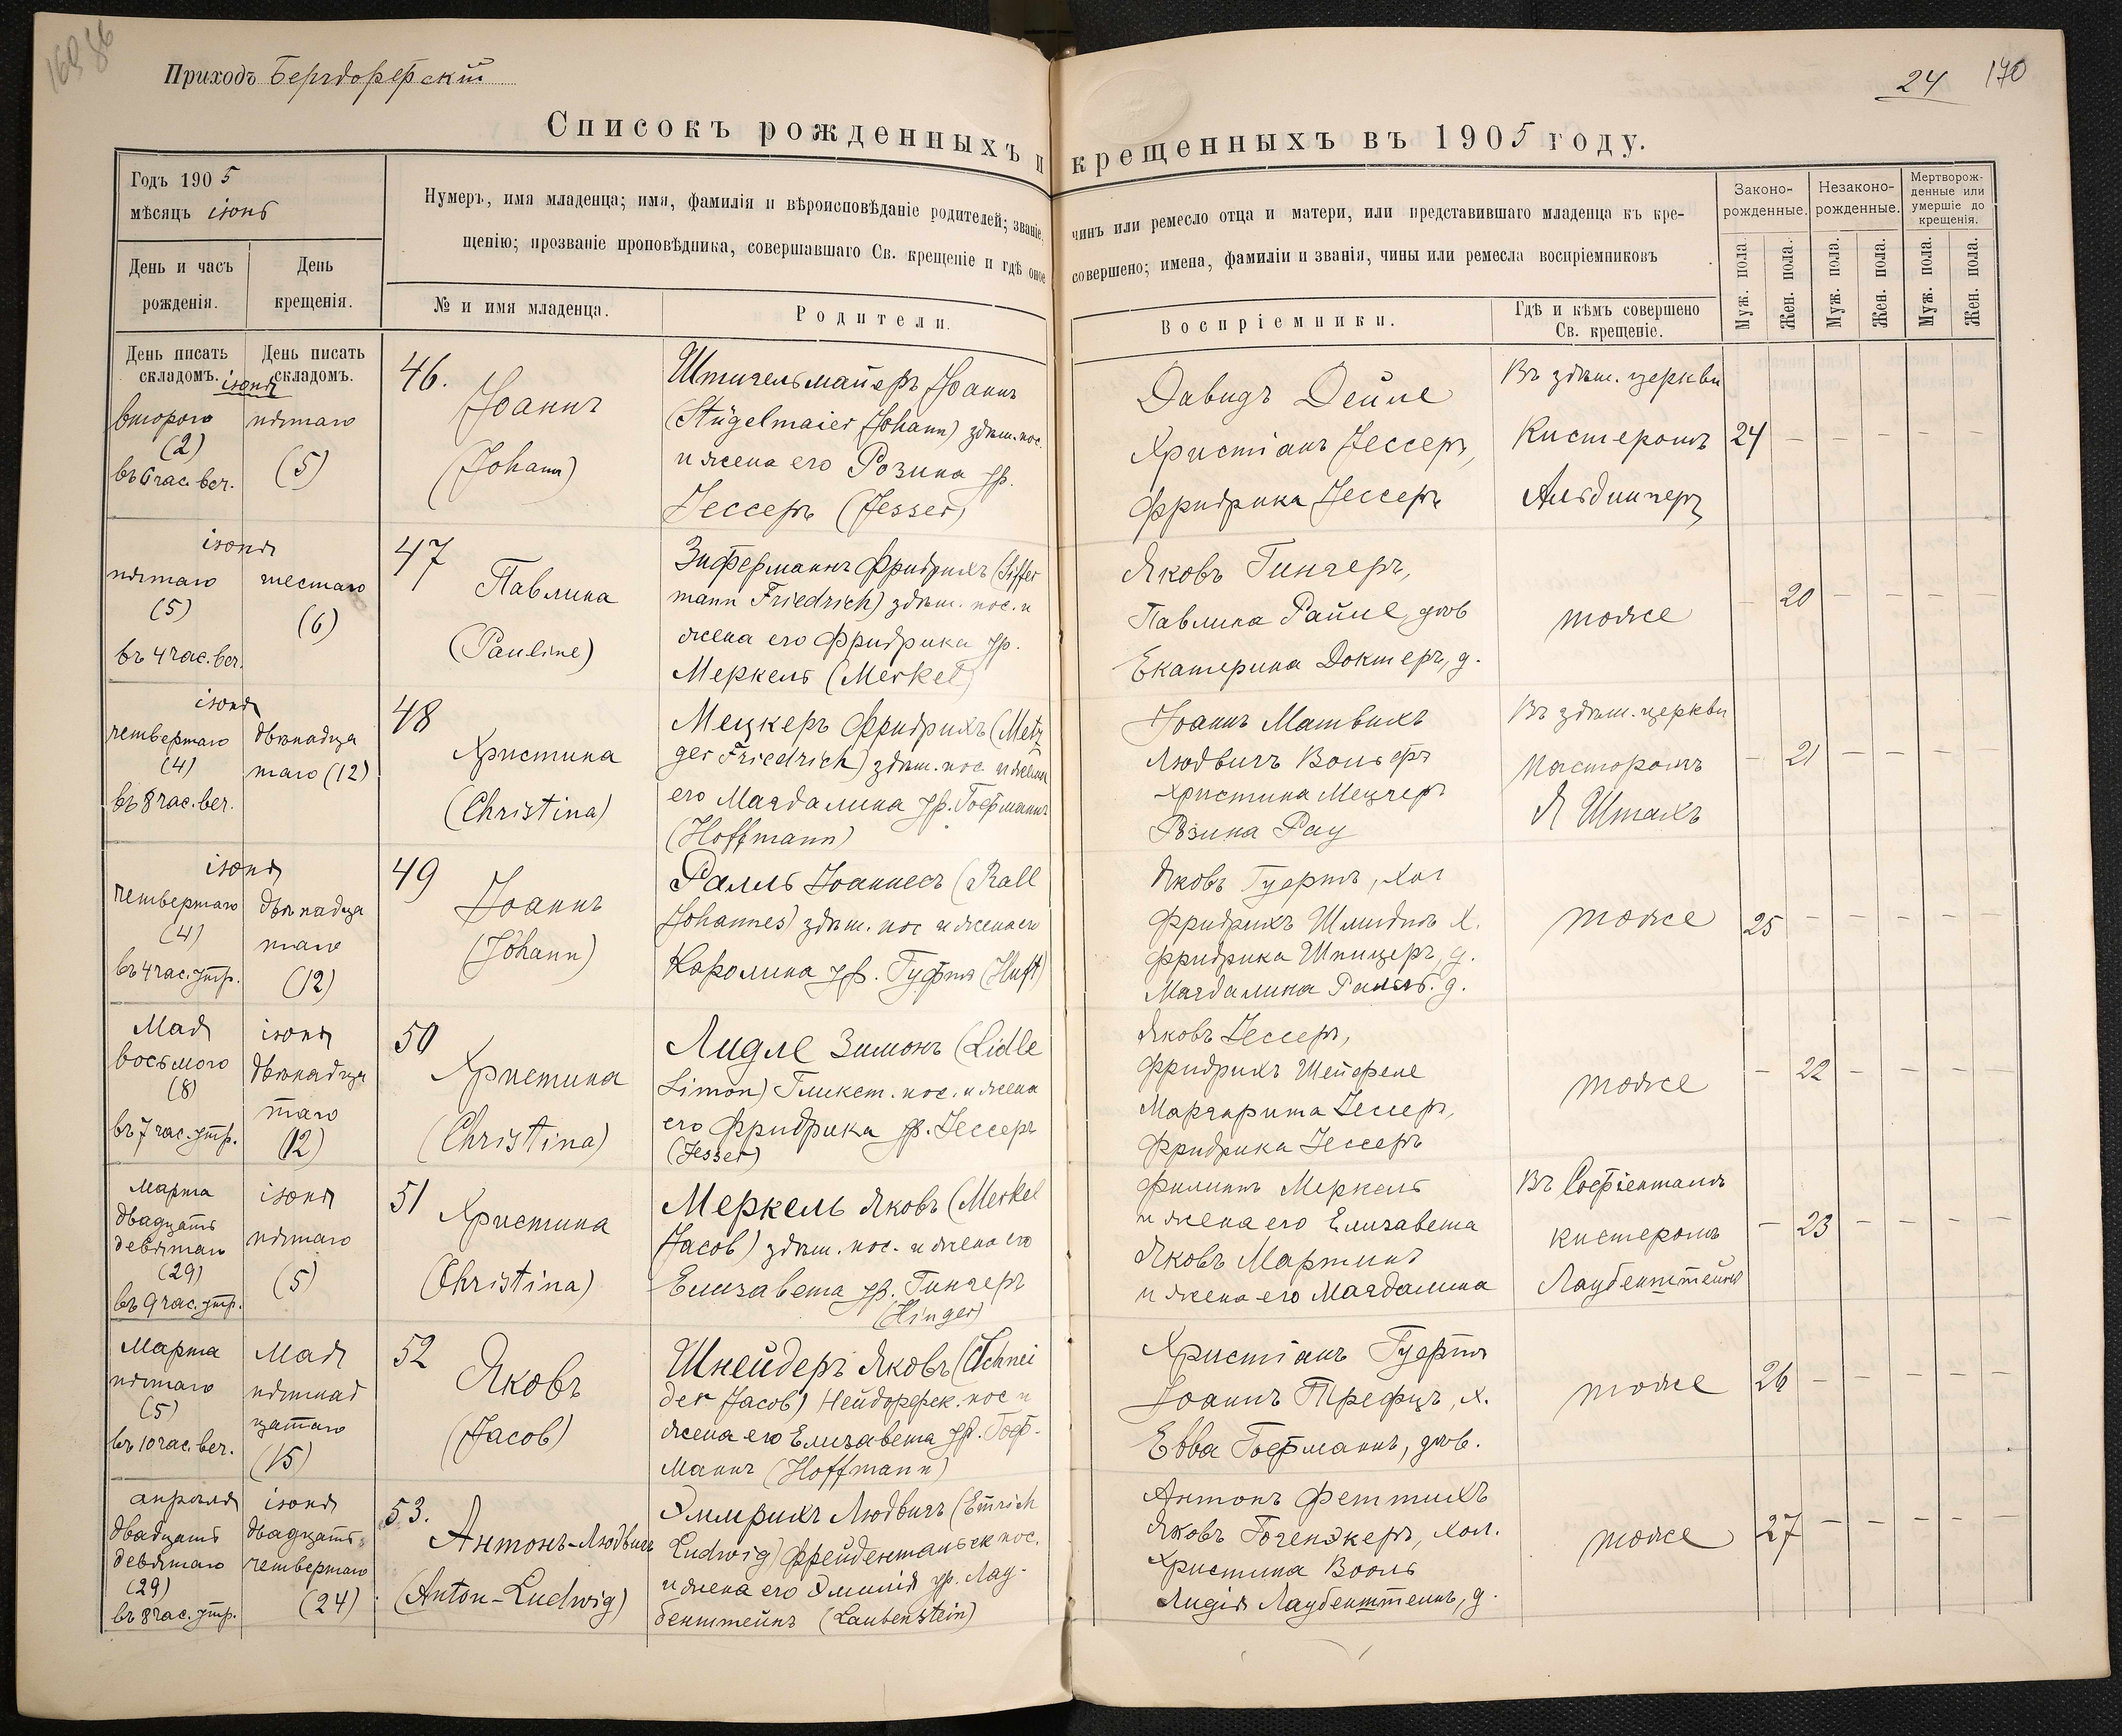 Приходъ Бергдорфскій
24 170
Списокъ рожденныхъ и крещенныхъ въ 1905 году.
Годъ 1905
мѣсяцъ іюнь
День и часъ рожденія.
День крещенія.
Нумеръ, имя младенца; имя, фамилія и вѣроисповѣданіе родителей; званіе, чинъ или ремесло отца и матери, или представившаго младенца къ кре-
щенію; прозваніе проповѣдника, совершавшаго Св. крещеніе и гдѣ оное совершено; имена, фамиліи и званія, чины или ремесла воспріемниковъ
№ и имя младенца.
Родители.
Воспріемники.
Гдѣ и кѣмъ совершено
Св. крещеніе.
Законо-
рожденные.
Незаконо-
рожденные.
Мертворож-
денные или
умершіе до
крещенія.
Муж. пола.
Жен. пола.
Муж. пола.
Жен. пола.
Муж. пола.
Жен. пола.
День писать
складомъ.
День писать
складомъ.
іюня
второго
(2)
въ 6 час. веч.
пятаго
(5)
46.
Іоаннъ
(Johann)
Штигельмайеръ Іоаннъ
(Stügelmaier Johann) здѣш. пос.
и жена его Розина ур.
Іессеръ (Jesser)
Давидъ Дейле
Христіанъ Іессеръ,
Фридрика Іессеръ
Въ здѣш. церкви
Кистеромъ
Альдингеръ
24 — — — — —
іюня
пятаго
(5)
въ 4 час. веч.
шестаго
(6)
47
Павлина
(Pauline)
Зиферманнъ Фридрихъ (Siffer
mann Friedrich) здѣш. пос. и
жена его Фридрика ур.
Меркель (Merkel)
Яковъ Гингеръ,
Павлина Райле, дѣв
Екатерина Доктеръ, д.
тоже
— 20 — — — —
іюня
четвертаго
(4)
въ 8 час. веч.
двѣнадца
таго (12)
48
Христина
(Christina)
Мецкеръ Фридрихъ (Metz
ger Friedrich) здѣш. пос. и жена
его Магдалина ур. Гофманнъ
(Hoffmann)
Іоаннъ Матвихъ
Людвигъ Вольфъ
Христина Мецгеръ
Розина Рау
Въ здѣш. церкви
Пасторомъ
Я Штахъ
— 21 — — — —
іюня
четвертаго
(4)
въ 4 час. утр.
двѣнадца
таго
(12)
49
Іоаннъ
(Johann)
Ралль Іоаннесъ (Rall
Johannes) здѣш. пос и жена его
Каролина ур. Гуфтъ (Huft)
Яковъ Гуфтъ, хол
Фридрихъ Шмидтъ х.
Фридрика Шпицеръ, д.
Магдалина Ралль. д.
тоже
25 — — — — —
Мая
восьмого
(8)
въ 7 час. утр.
іюня
двѣнадца
таго
(12)
50
Христина
(Christina)
Лидле Зимонъ (Lidle
Simon) Гликст. пос. и жена
его Фридрика ур. Іессеръ
(Jesser)
Яковъ Іессеръ,
Фридрихъ Шейфеле
Маргарита Іессеръ,
Фридрика Іессеръ
тоже
— 22 — — — —
Марта
двадцать
девятаго
(29)
въ 9 час. утр.
іюня
пятаго
(5)
51
Христина
(Christina)
Меркель Яковъ (Merkel
Jacob) здѣш. пос. и жена его
Елизавета ур. Гингеръ
(Hinger)
Филиппъ Меркель
и жена его Елизавета
Яковъ Мартинъ
и жена его Магдалина
Въ Софіенталь
кистеромъ
Лаубенштейнъ
— 23 — — — —
Марта
пятаго
(5)
въ 10 час. веч.
Мая
пятнад
цатаго
(15)
52
Яковъ
(Jacob)
Шнейдеръ Яковъ (Schnei
der Jacob) Нейдорфск. пос и
жена его Елизавета ур. Гоф-
манъ (Hoffmann)
Христіанъ Гуфтъ
Іоаннъ Трефцъ, х.
Евва Гофманнъ, дѣв.
тоже
26 — — — — —
апрѣля
двадцать
девятаго
(29)
въ 8 час. утр.
іюня
двадцать
четвертаго
(24)
53.
Антонъ-Людвигъ
(Anton-Ludwig)
Эммрихъ Людвигъ (Emrich
Ludwig) Фрейдентальск пос.
и жена его Эмилія ур. Лау-
бенштейнъ (Laubenstein)
Антонъ Феттихъ
Яковъ Гогенэкеръ, хол.
Христина Вооль
Лидія Лаубенштейнъ, д.
тоже
27 — — — — —